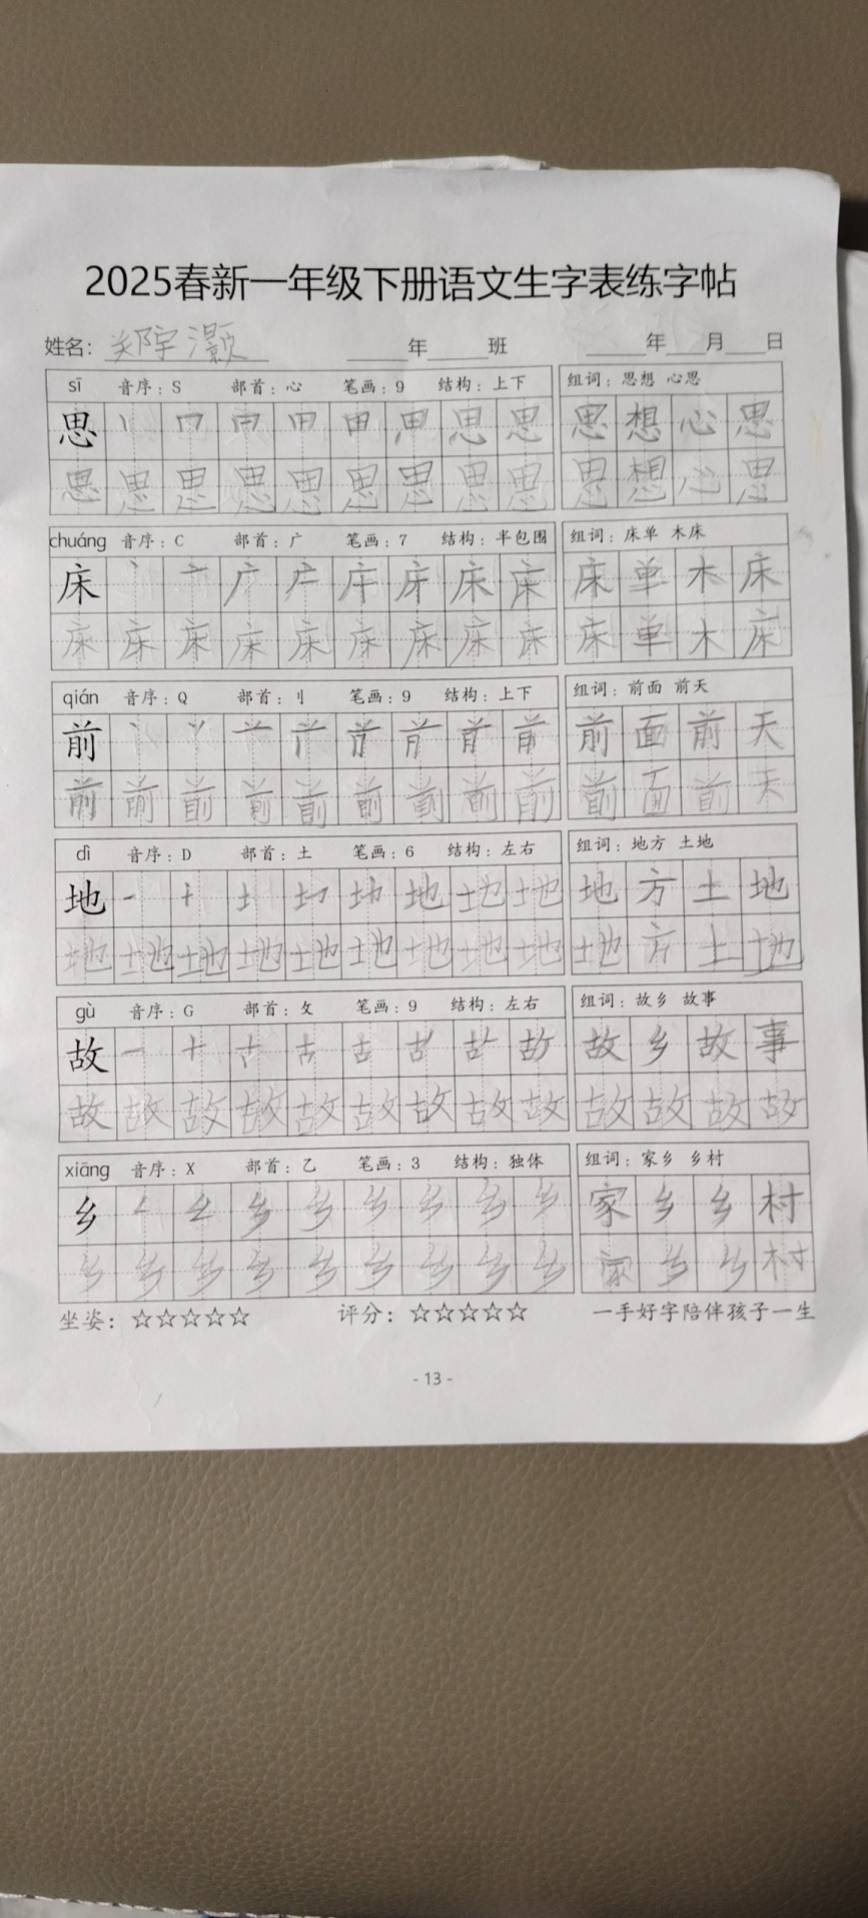 2025春新一年级下册语文生字表练字帖
姓名: 郑宇灏 年 班 年 月 日
sī 音序: S 部首: 心 笔画: 9 结构: 上下 组词: 思想 心思
思 丨 思 思 思 想 心 思
思 思 思 思 思 思 思 思 思 思 想 心 思
chuáng 音序: C 部首: 广 笔画: 7 结构: 半包围 组词: 床单 木床
床 丶 亠 广 床 床 床 单 木 床
床 床 床 床 床 床 床 床 床 床 单 木 床
qián 音序: Q 部首: 刂 笔画: 9 结构: 上下 组词: 前面 前天
前 丶 丷 前 面 前 天
前 前 前 前 前 前 前 前 前 前 面 前 天
dì 音序: D 部首: 土 笔画: 6 结构: 左右 组词: 地方 土地
地 一 十 土 地 地 地 地 方 土 地
地 地 地 地 地 地 地 地 地 地 方 土 地
gù 音序: G 部首: 攵 笔画: 9 结构: 左右 组词: 故乡 故事
故 一 十 古 故 故 乡 故 事
故 故 故 故 故 故 故 故 故 故 故 故 故
xiāng 音序: X 部首: 乙 笔画: 3 结构: 独体 组词: 家乡 乡村
乡 乡 乡 乡 乡 乡 乡 家 乡 乡 村
乡 乡 乡 乡 乡 乡 乡 乡 乡 家 乡 乡 村
坐姿: ☆☆☆☆☆ 评分: ☆☆☆☆☆ 一手好字陪伴孩子一生
- 13 -